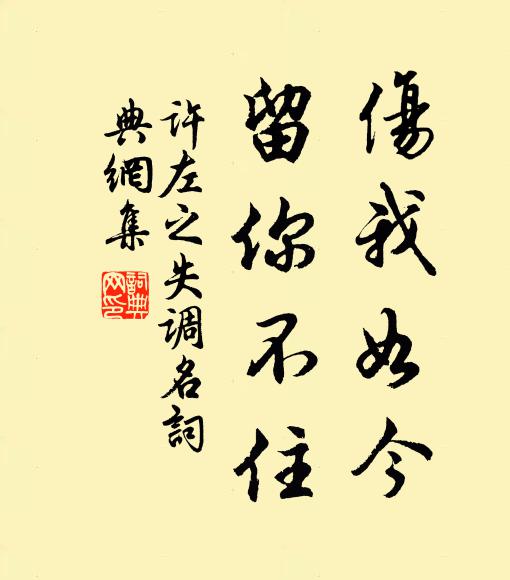 傷我如今
留你不住
許左之失调名詞
典網集
詞典网印